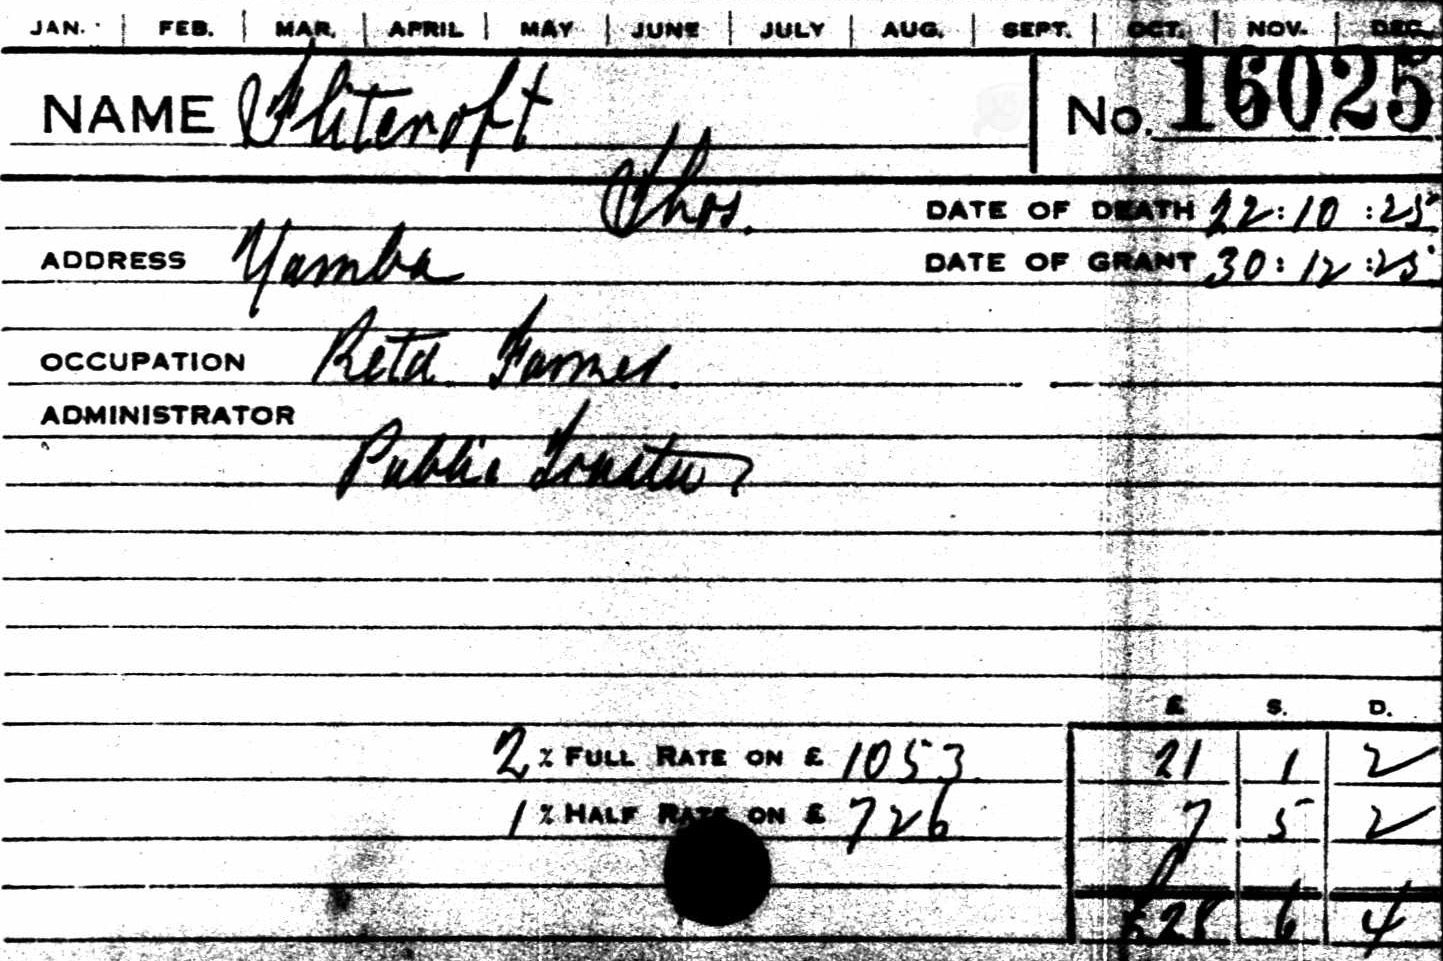 JAN. | FEB. | MAR. | APRIL | MAY | JUNE | JULY | AUG. | SEPT. | OCT. | NOV. | DEC.
NAME Flitcroft No. 16025
Thos.
DATE OF DEATH 22:10:25
ADDRESS Yamba DATE OF GRANT 30:12:25
OCCUPATION Retd. Farmer.
ADMINISTRATOR
Public Trustee
£ S. D.
2 % FULL RATE ON £ 1053 21 1 2
1 % HALF RATE ON £ 726 7 5 2
£28 6 4